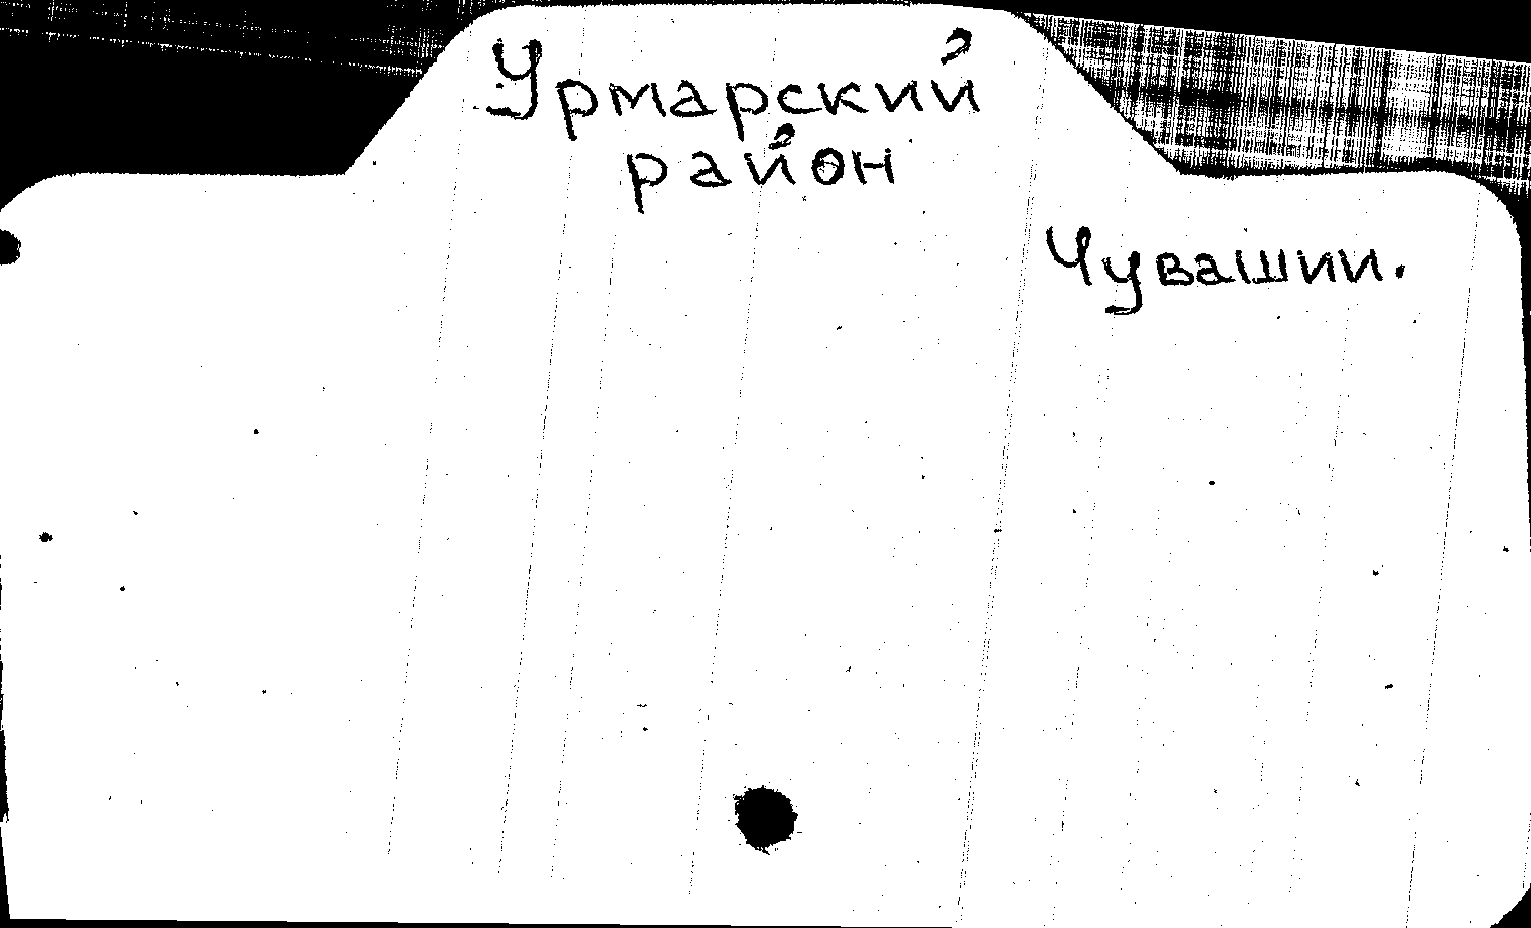 Урмарский
район
Чувашии.